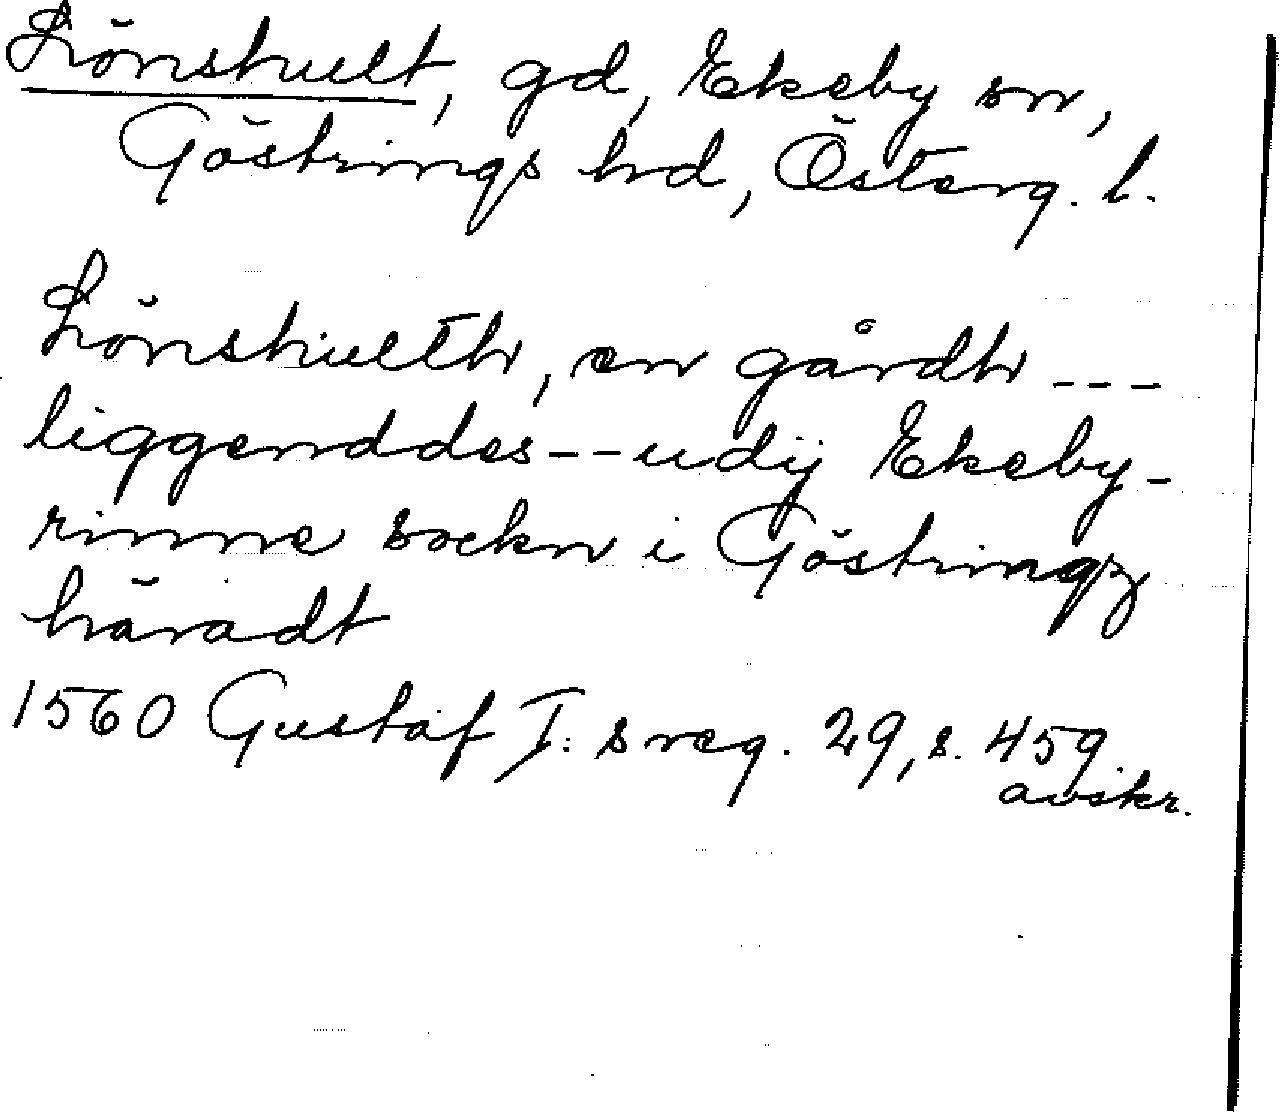 Lönshult, gd, Ekeby sn,
Göstrings hd, Österg. l.
Lönshulth, en gårdh ---
liggenddes--udij Ekeby-
rinne sockn i Göstringz
häradt
1560 Gustaf I: s reg. 29, s. 459.
avskr.